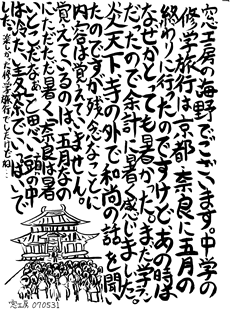 窓工房の海野でございます。中学の
修学旅行は京都・奈良に五月の
終わりに行ったのですけど、あの時は
なぜかとっても暑かった。まだ学ラン
だったので余計に暑く感じました。
炎天下、寺の外で和尚の話を聞い
たのですが残念なことに
内容は覚えていません。
覚えているのは、五月なの
にただただ暑く、奈良は暑
いとこだなぁ〜と思い、頭の中
は冷たい麦茶でいっぱいで
した。楽しかった修学旅行でしたけどね…
窓工房 070531